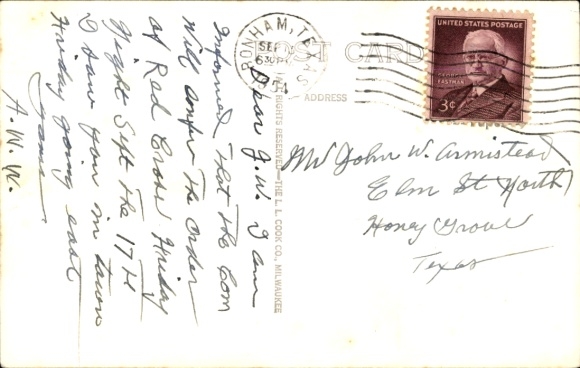 BONHAM, TEXAS
SEP
630 PM
1954
POST CARD
ADDRESS
UNITED STATES POSTAGE
GEORGE EASTMAN
3¢
RIGHTS RESERVED—THE L. L. COOK CO., MILWAUKEE
Dear J.W. I am
Informed that the Com
will confer the order
of Red Cross Friday
Night Sept the 17th
I saw you in town
Friday going east
Yours
A.W.W.
Mr John W. Armistead
Elm St North
Honey Grove
Texas